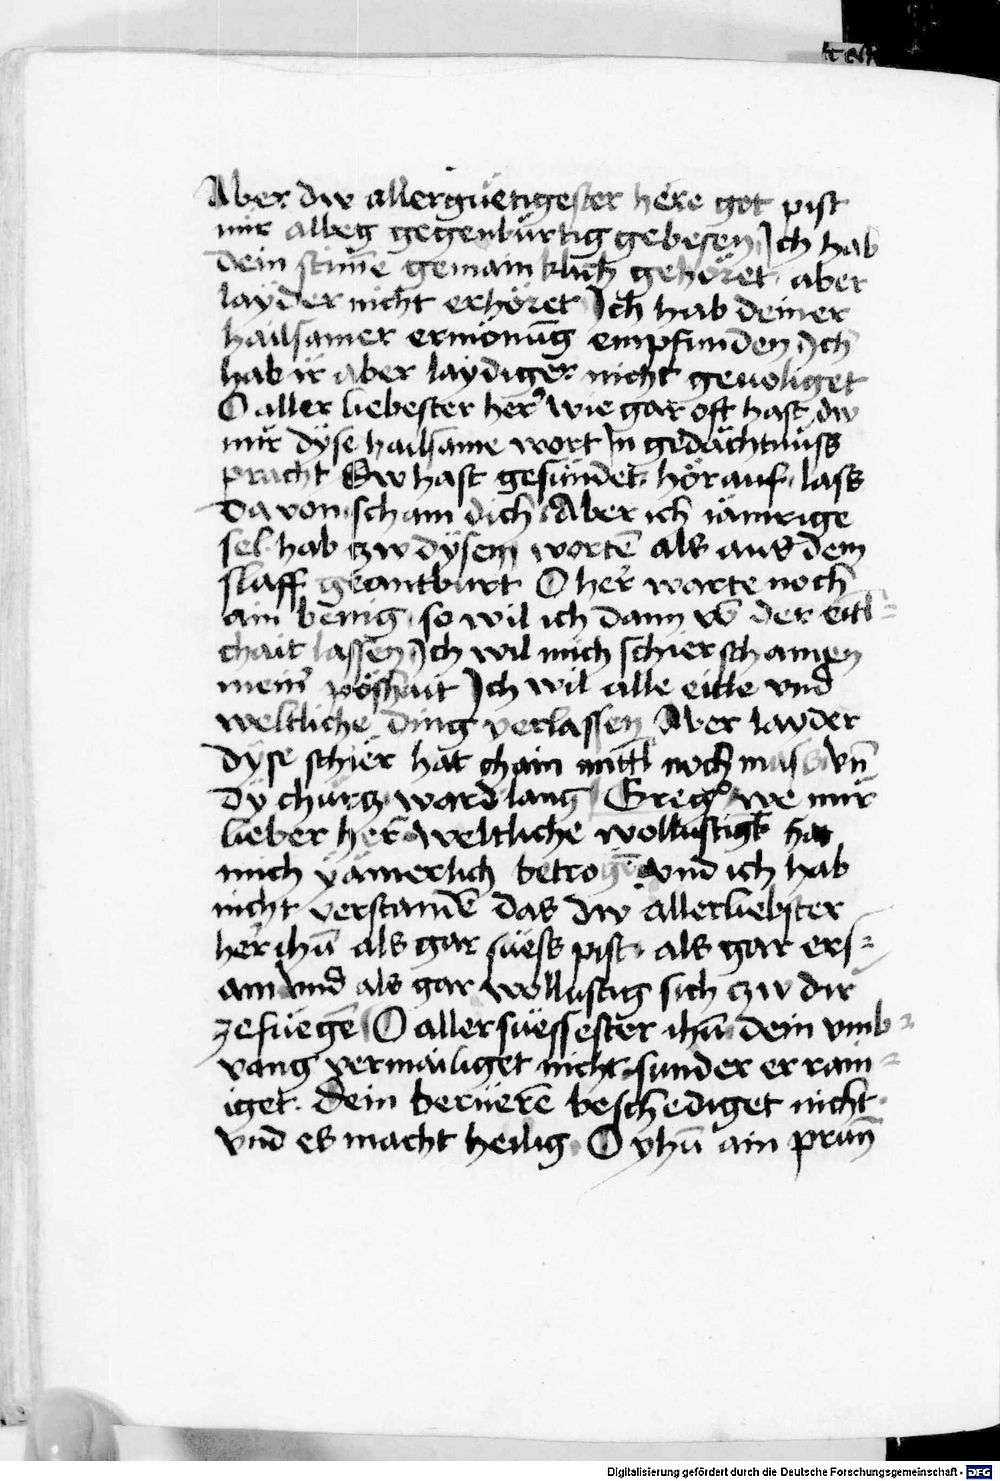 Aber dw allergüetigester here got pist
mir albeg gegenbürtig gebesen Ich hab
dein stim̄e gemainklich gehöret aber
layder nicht erhöret Ich hab deiner
hailsamer ermonūg empfunden Ich
hab ir aber laydiger nicht geuolget
O aller liebester her wie gar oft hast dw
mir dyse hailsame wort In gedächtnüss
pracht Dw hast gesündet hör auf lass
da von scham dich Aber ich iämrige
sel hab czw dysem wortē als aus dem
slaff geantburt O her warte noch
ain benig so wil ich dann vō der eitl=
chait lassen Ich wil mich schier schamen
meiner poshait Ich wil alle eitle vnd
weltliche ding verlassen Aber layder
dyse schier hat chain mittl noch mass vn̄
dy churcz ward lang Grego we mir
lieber her weltliche wollustigk hat
mich yämerlich betrogē vnd ich hab
nicht verstandē das dw allerliebster
her ihū als gar suess pist als gar ers=
am vnd als gar wollustig sich czw dir
zefuegē O allersüessester ihū dein vmb=
vang vermailiget nicht sunder er rain=
iget. dein berüerē beschediget nicht
vnd es macht heilig O yhū ain prun̄